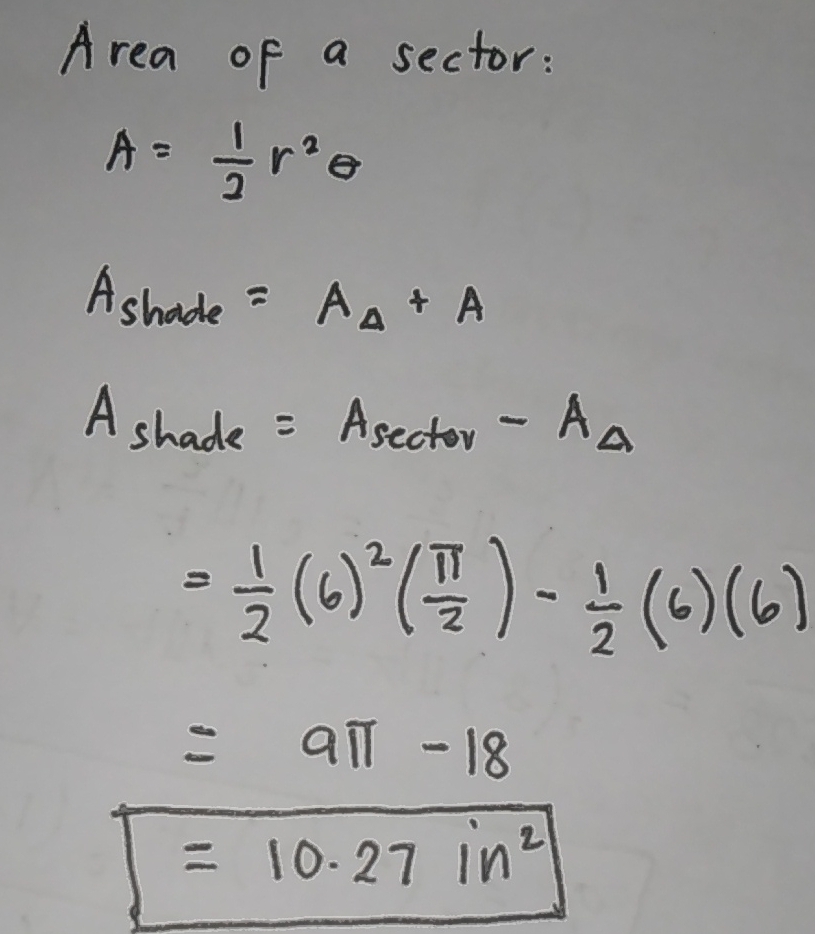 Area of a sector:
A = 1/2 r²θ
A shade = A△ + A
A shade = A sector - A△
= 1/2 (6)² (π/2) - 1/2 (6)(6)
= 9π - 18
= 10.27 in²